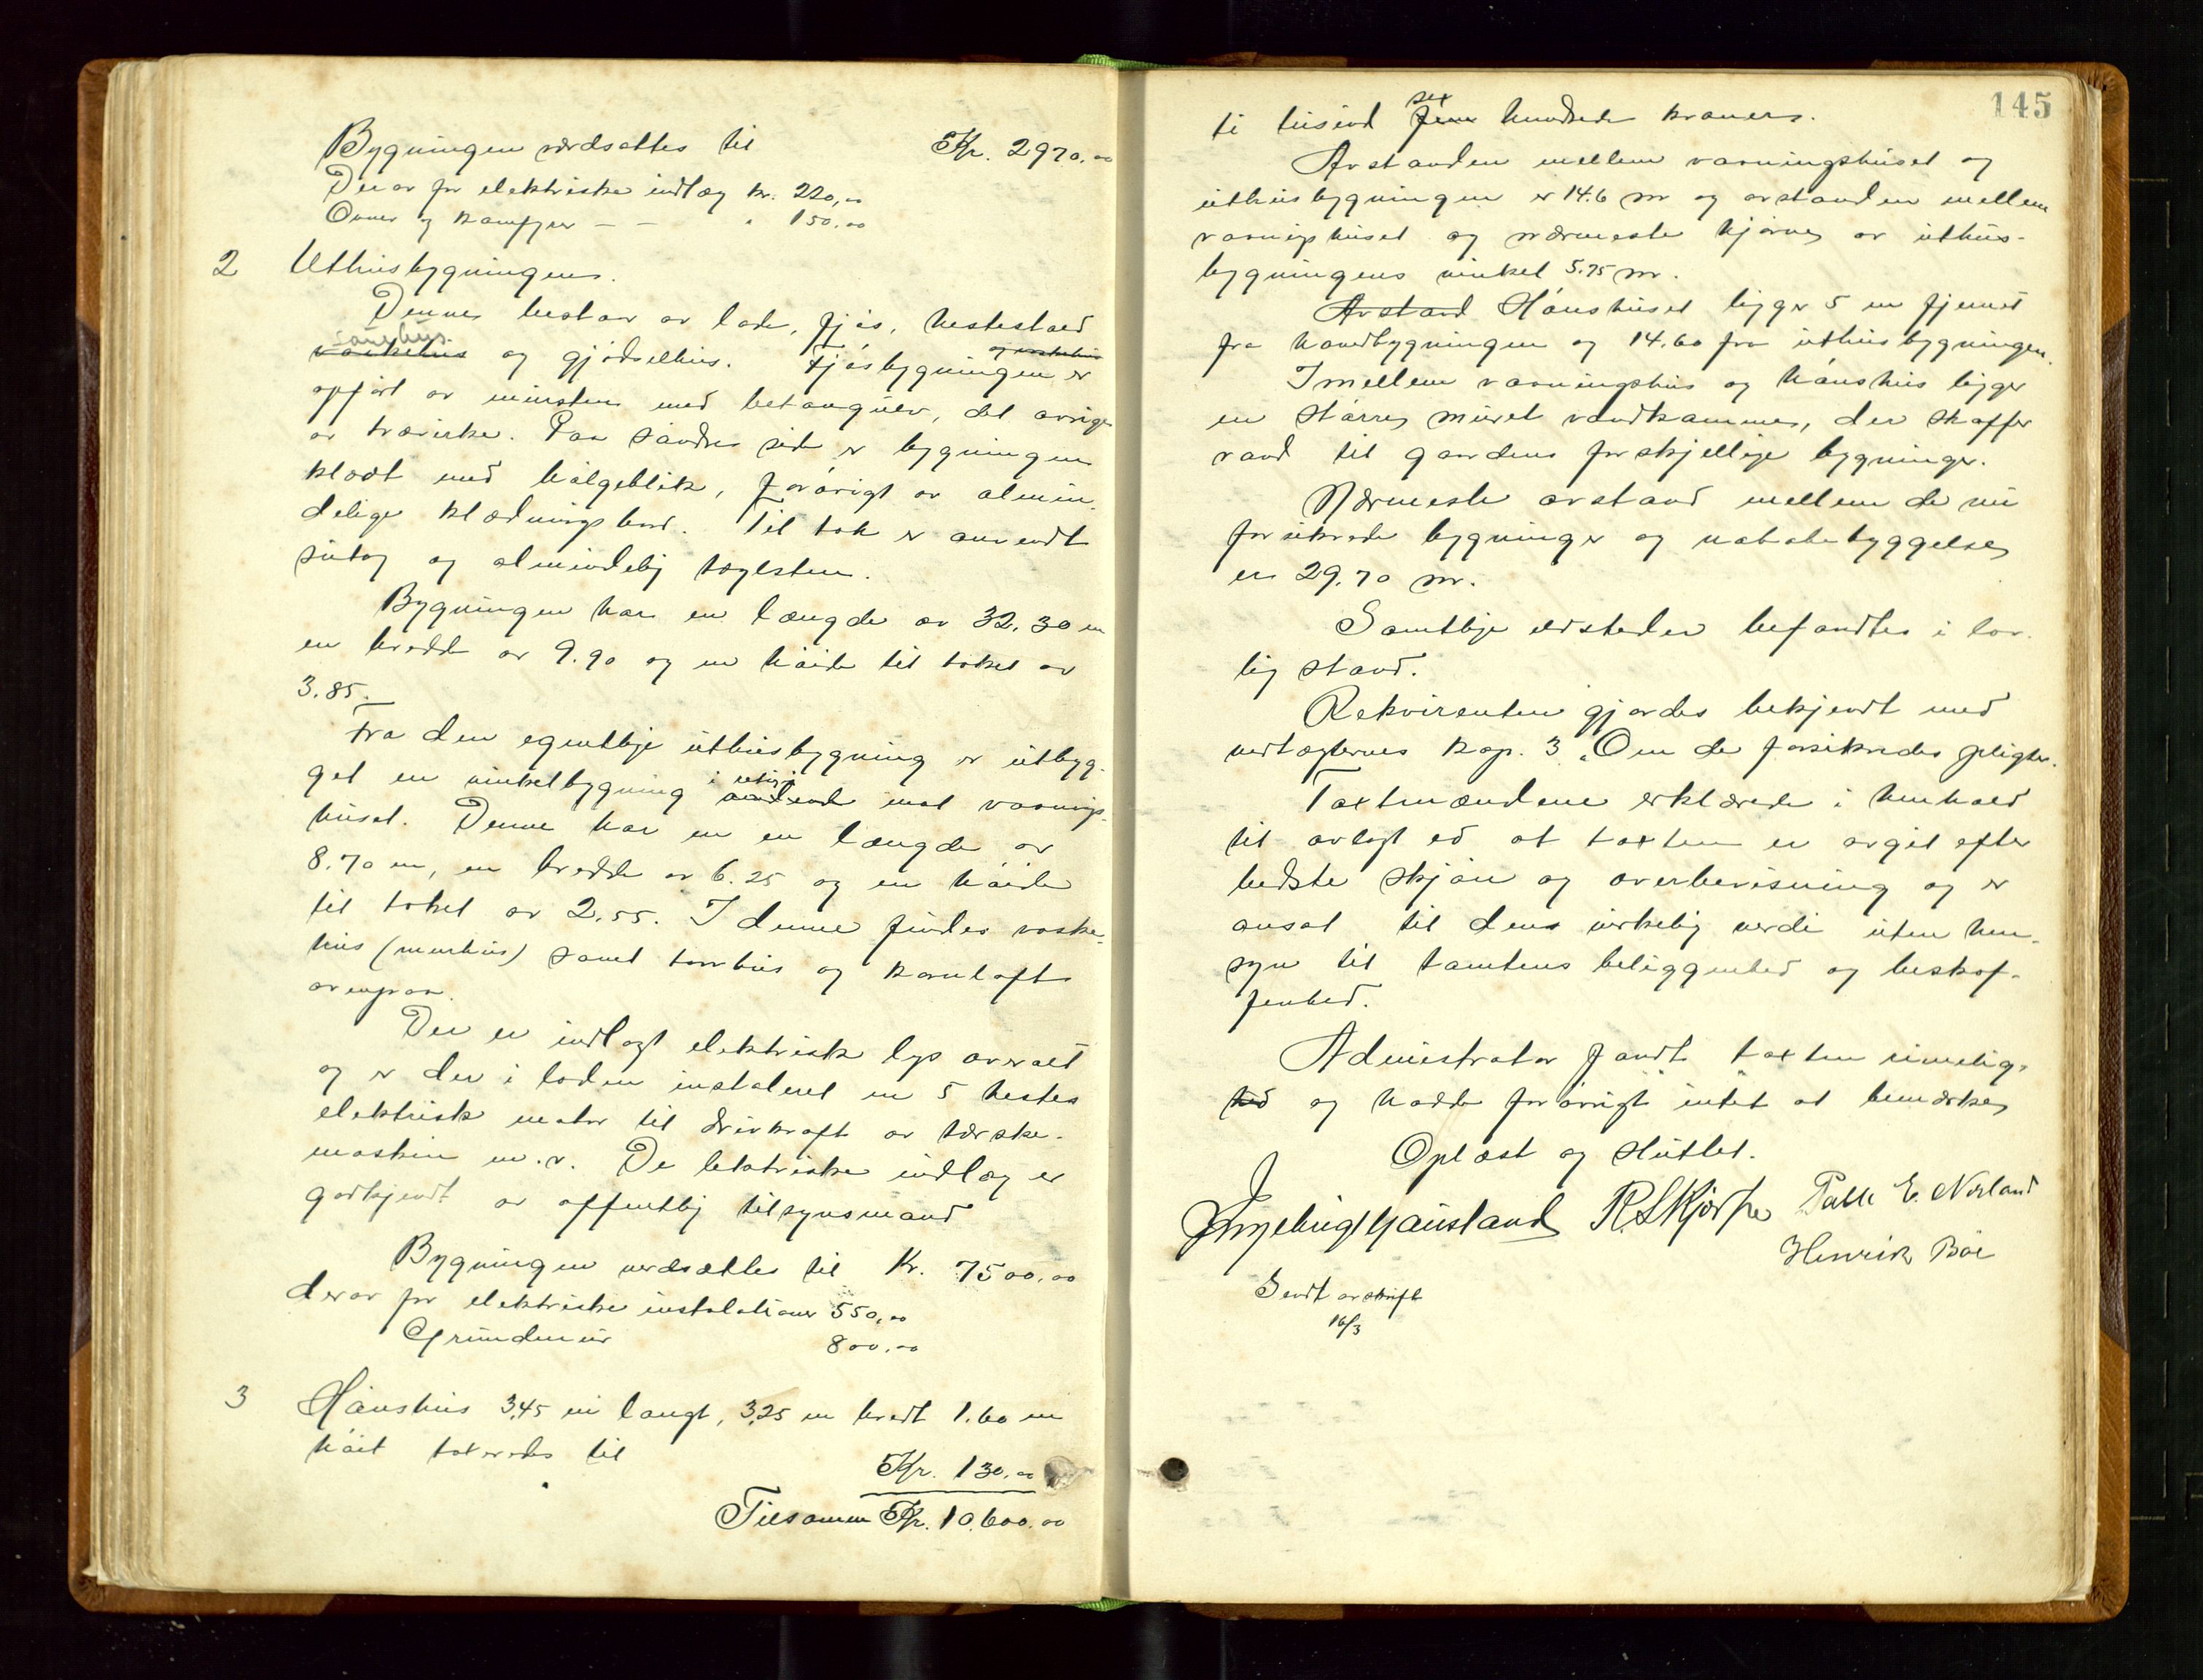 Bygningen værdsættes til Kr. 2970.00
Derav for elektriske indlæg kr. 220,00
Ovner og komfyer — — " 150.00
2 Uthusbygningen.
Denne bestaar av lade, fjøs, hestestald
vaskehus og gjødselhus. Fjøsbygningen er
opført av mursten med betongulv, det øvrige
av trævirke. Paa søndre side er bygningen
klædt med bølgeblik, forøvrigt av almin-
delige klædningsbord. Til tak er anvendt
sutag og almindelig taglsten.
Bygningen har en længde av 32.30 m
en bredde av 9.90 og en høide til taket av
3.85.
Fra den egentlige uthusbygning er utbyg-
get en vinkelbygning i retning mot vaanings-
huset. Denne har en en længde av
8.70 m, en bredde av 6.25 og en høide
til taket av 2.55. I denne findes vaske-
hus (murhus) samt torvhus og kornloft
ovenpaa.
Der er indlagt elektrisk lys overalt
og er der i laden instaleret en 5 hestes
elektrisk motor til drivkraft av tærske-
maskin m.v. De elektriske indlæg er
godkjendt av offentlig tilsynsmand
Bygningen verdsættes til Kr. 7500.00
derav for elektriske instalationer 550,00
Grundmur 800.00
3 Hønshus 3.45 m langt, 3.25 m bredt 1.60 m
høit taxeredes til
Kr. 130.00
Tilsammen Kr. 10.600.00
145
sex
ti tusind fem hundrede kroner.
Avstanden mellem vaaningshuset og
uthusbygningen er 14.6 m og avstanden mellem
vaaningshuset og nærmeste hjørne av uthus-
bygningens vinkel 5.75 m.
Avstand Hønshuset ligger 5 m fjernet
fra hovedbygningen og 14.60 fra uthusbygningen.
Imellem vaaningshus og hønshus ligger
en større muret vandkamme, der skaffer
vand til gaardens forskjellige bygninger.
Nærmeste avstand mellem de nu
forsikrede bygninger og nabobebyggelse
er 29.70 m.
Samtlige ildsteder befandtes i lov-
lig stand.
Rekvirenten gjordes bekjendt med
vedtægternes kap. 3 "Om de forsikredes pligter.
Taxtmændene erklærede i henhold
til avlagt ed at taxten er avgit efter
bedste skjøn og overbevisning og er
ansat til dens virkelig verdi uten hen-
syn til tomtens beliggenhed og beskaf-
fenhed.
Administrator fandt taxten rimelig-
hed og hadde forøvrigt intet at bemærke
Oplæst og sluttet.
Ingebrigt Haustand R. Skjørpe Palle E. Norland
Henrik Bøe
Sendt avskrift
16/3